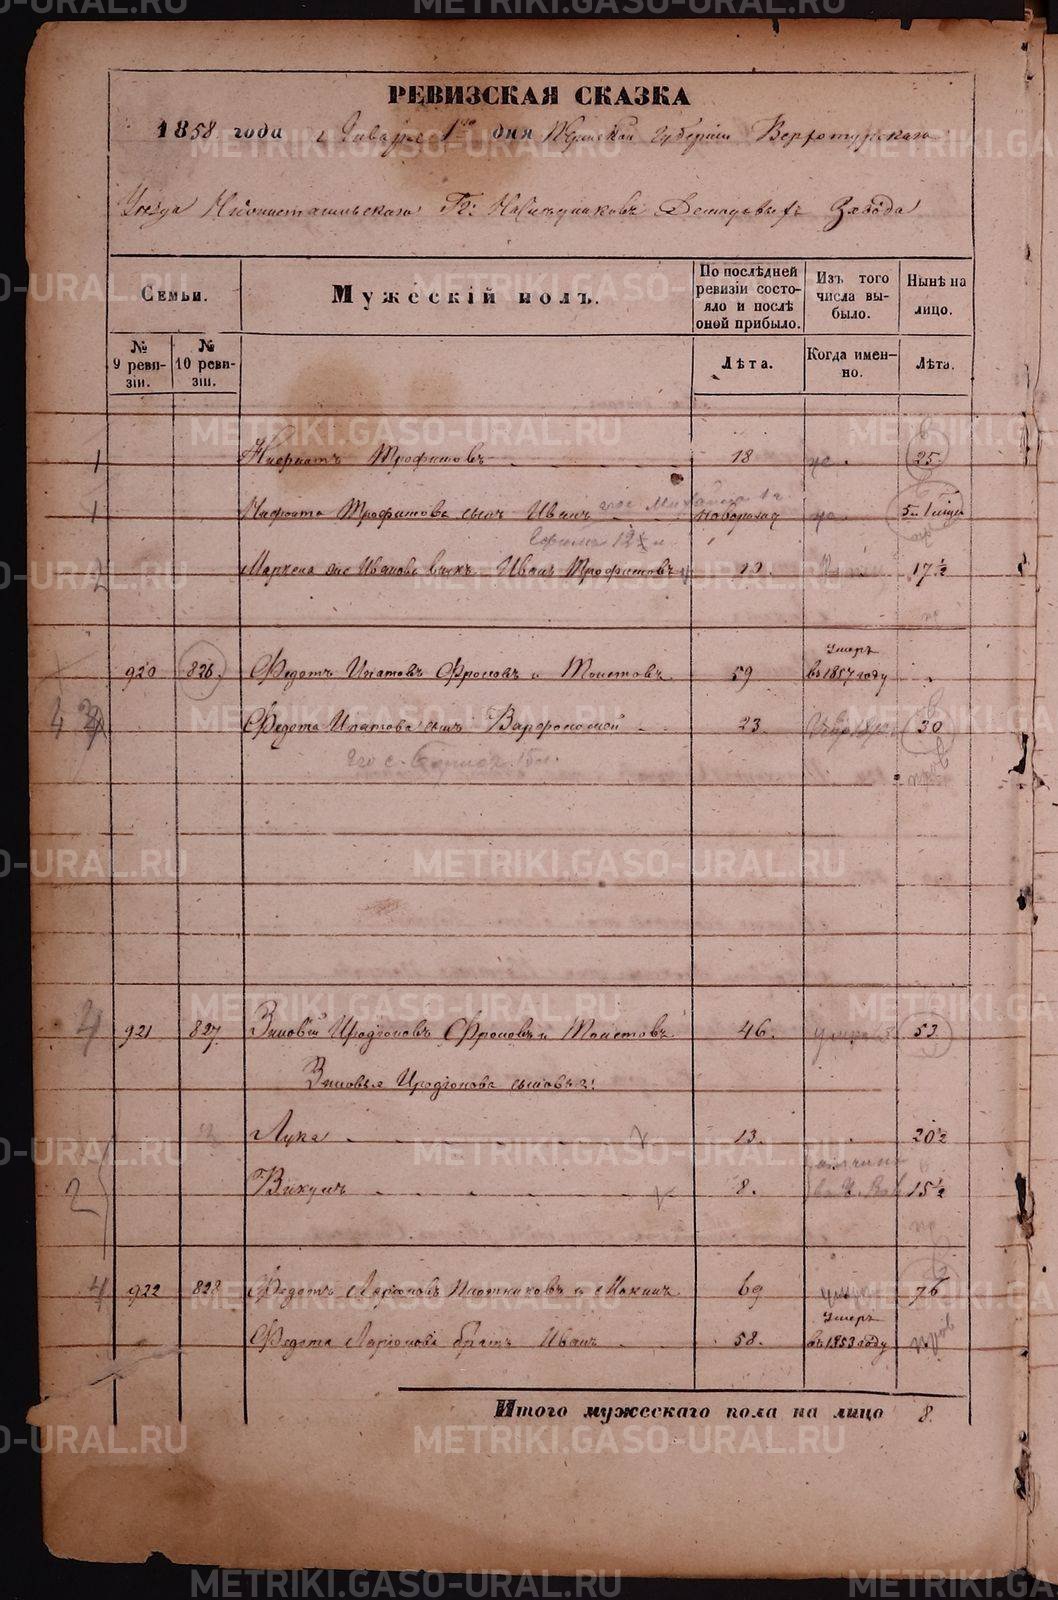 РЕВИЗСКАЯ СКАЗКА
1858 года Января 1го дня Пермской Губернии Верхотурскаго
Уезда Нижнетагильскаго Гг: Наследниковъ Демидовыхъ Завода
Семьи.
Мужескій полъ.
По послѣдней ревизіи состояло и послѣ оной прибыло.
Изъ того числа выбыло.
Нынѣ на лицо.
№ 9 ревизіи.
№ 10 ревизіи.
Лѣта.
Когда именно.
Лѣта.
1 Трофимовъ 18 25
1 Трофимова сынъ Иванъ новорожд
Иванова внукъ Иванъ Трофимовъ 17½
920 826. Федотъ Ипатовъ Фроловъ и Толстовъ 59 Умеръ въ 1857 году
Федота Ипатова сынъ Варфоломей 23. 30
его с.
921 827 Зиновій Иродіоновъ Фроловъ и Толстовъ 46. 53
Зиновья Иродіонова сыновья:
Лука 13. 20½
2 Викулъ 8. 15½
4 922 828 Федотъ Ларіоновъ Плотниковъ и Мокинъ 69 умеръ 76
Федота Ларіонова братъ Иванъ 58. Умеръ въ 1853 году
Итого мужескаго пола на лицо 8.
METRIKI.GASO-URAL.RU